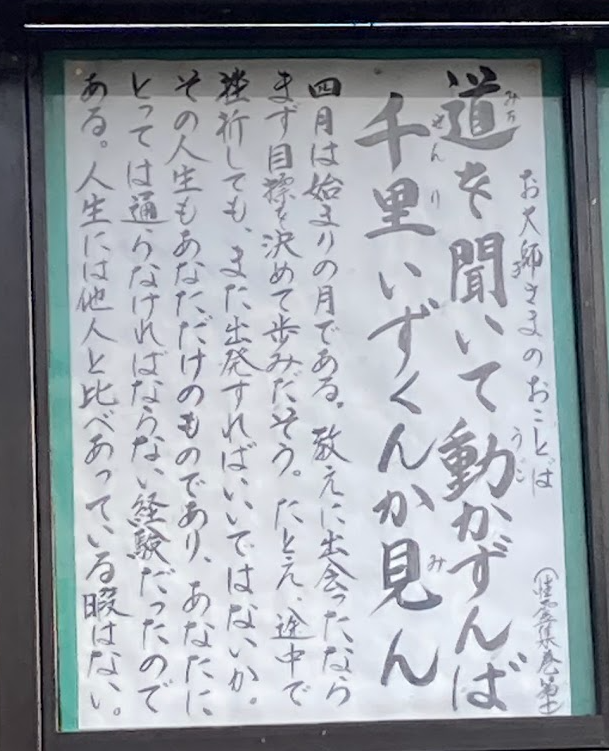 お大師さまのおことば
(性霊集巻第十)
道を聞いて動かずんば
千里いずくんか見ん
四月は始まりの月である。教えに出会ったなら
まず目標を決めて歩みだそう。たとえ、途中で
挫折しても、また出発すればいいではないか。
その人生もあなただけのものであり、あなたに
とっては通らなければならない経験だったので
ある。人生には他人と比べあっている暇はない。